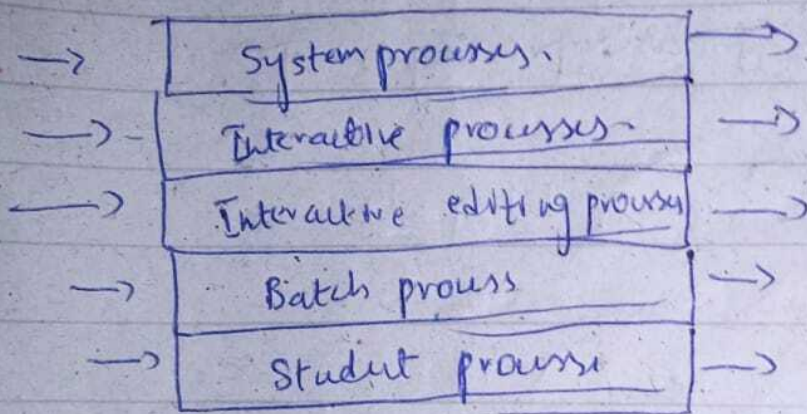 System processes.
Interactive processes.
Interactive editing processes
Batch process
Student process